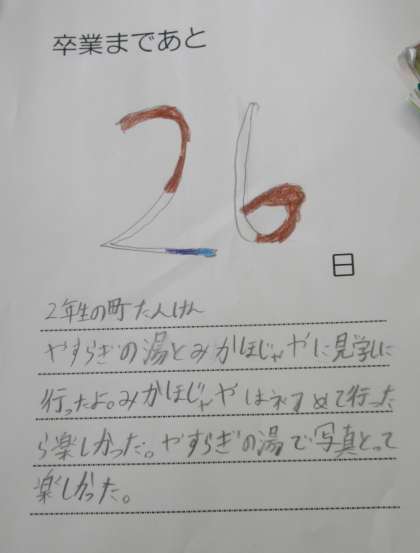 卒業まであと
26
日
2年生の町たんけん
やすらぎの湯とみかほじゃやに見学に
行ったよ。みかほじゃやはネすめて行った
ら楽しかった。やすらぎの湯で写真とって
楽しかった。